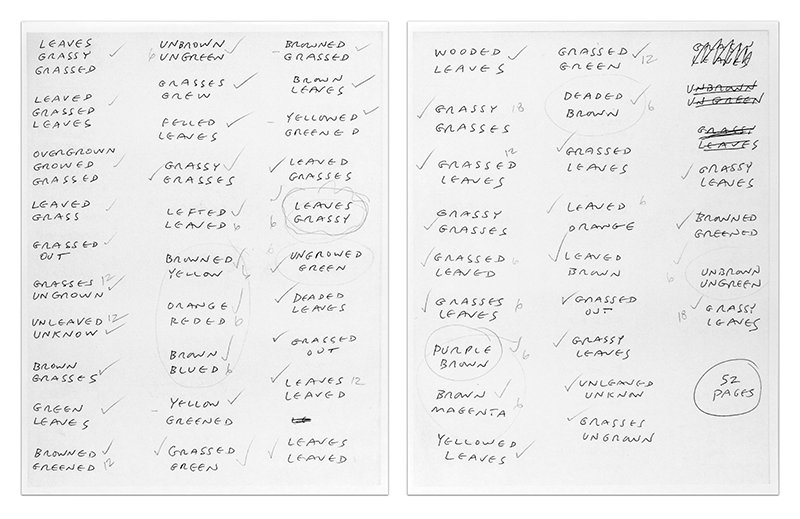 LEAVES
GRASSY
GRASSED
LEAVED
GRASSED
LEAVES
OVERGROWN
GROWED
GRASSED
LEAVED
GRASS
GRASSED
OUT
GRASSES 12
UNGROWN
UNLEAVED 12
UNKNOW
BROWN
GRASSES
GREEN
LEAVES
BROWNED
GREENED 12
UNBROWN
6 UNGREEN
GRASSES
GREW
FELLED
LEAVES
GRASSY
GRASSES
LEFTED
LEAVED 6
BROWNED
YELLOW 6
ORANGE
REDED 6
BROWN
BLUED 6
YELLOW
GREENED
GRASSED
GREEN
BROWNED
GRASSED
BROWN
LEAVES
YELLOWED
GREENED
LEAVED
GRASSES
LEAVES
6 GRASSY
6 UNGROWED
GREEN
DEADED
LEAVES
GRASSED
OUT
LEAVES 12
LEAVED
LEAVES
LEAVED
WOODED
LEAVES
GRASSY 18
GRASSES
12
GRASSED
LEAVES
GRASSY
GRASSES
GRASSED 6
LEAVED
GRASSES 6
LEAVES
PURPLE
BROWN 6
BROWN
MAGENTA 6
YELLOWED
LEAVES
GRASSED
GREEN 12
DEADED
BROWN 6
GRASSED
LEAVES
LEAVED 6
ORANGE
LEAVED
BROWN 6
GRASSED
OUT
GRASSY
LEAVES
UNLEAVED
UNKNOW
GRASSES
UNGROWN
UNBROWN
UNGREEN
GRASSY
LEAVES
GRASSY
LEAVES
BROWNED
GREENED
UNBROWN
6 UNGREEN
18 GRASSY
LEAVES
52
PAGES